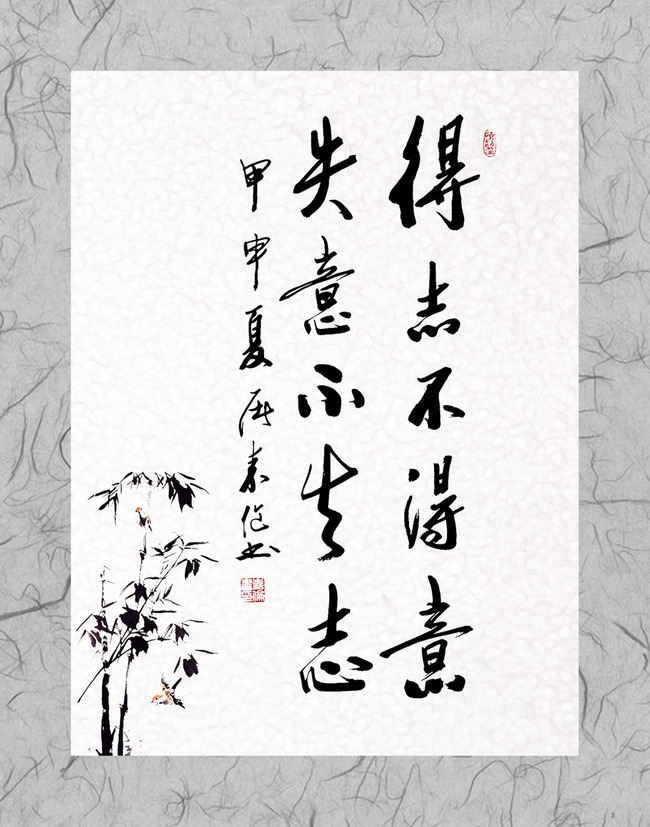 得志不得意
失意不失志
甲申夏 秦俊书